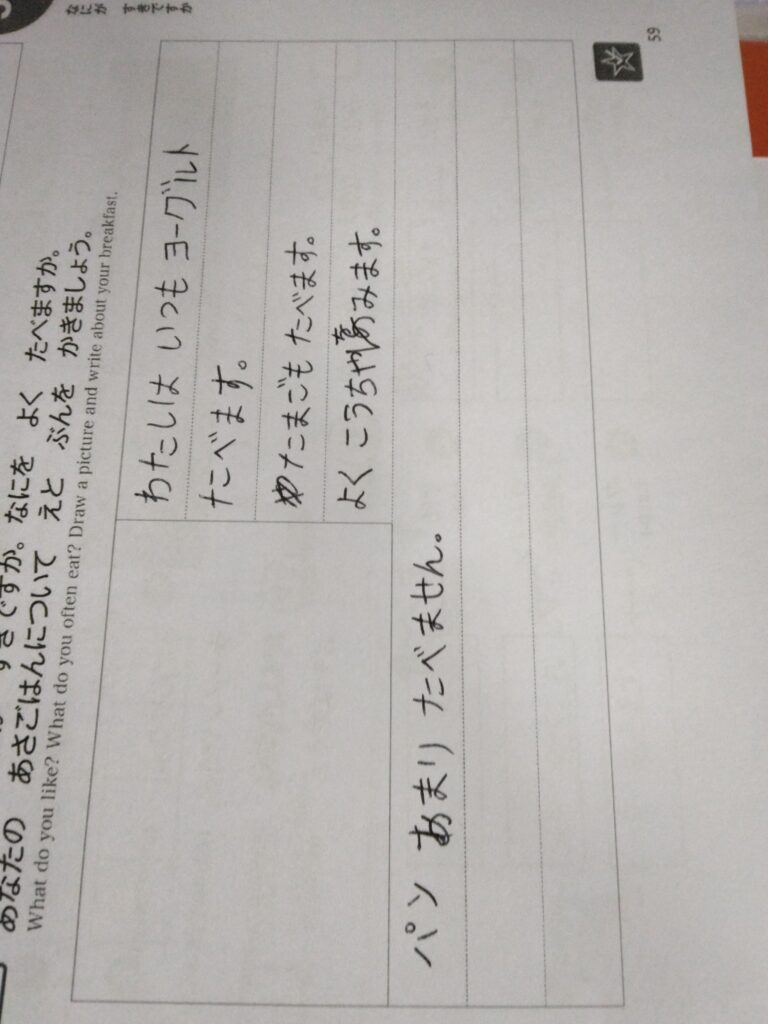 なにが すきですか
すきですか。なにを よく たべますか。
あなたの あさごはんについて えと ぶんを かきましょう。
What do you like? What do you often eat? Draw a picture and write about your breakfast.
わたしは いつも ヨーグルト
たべます。
たまごも たべます。
よく こうちゃ のみます。
パン あまり たべません。
59